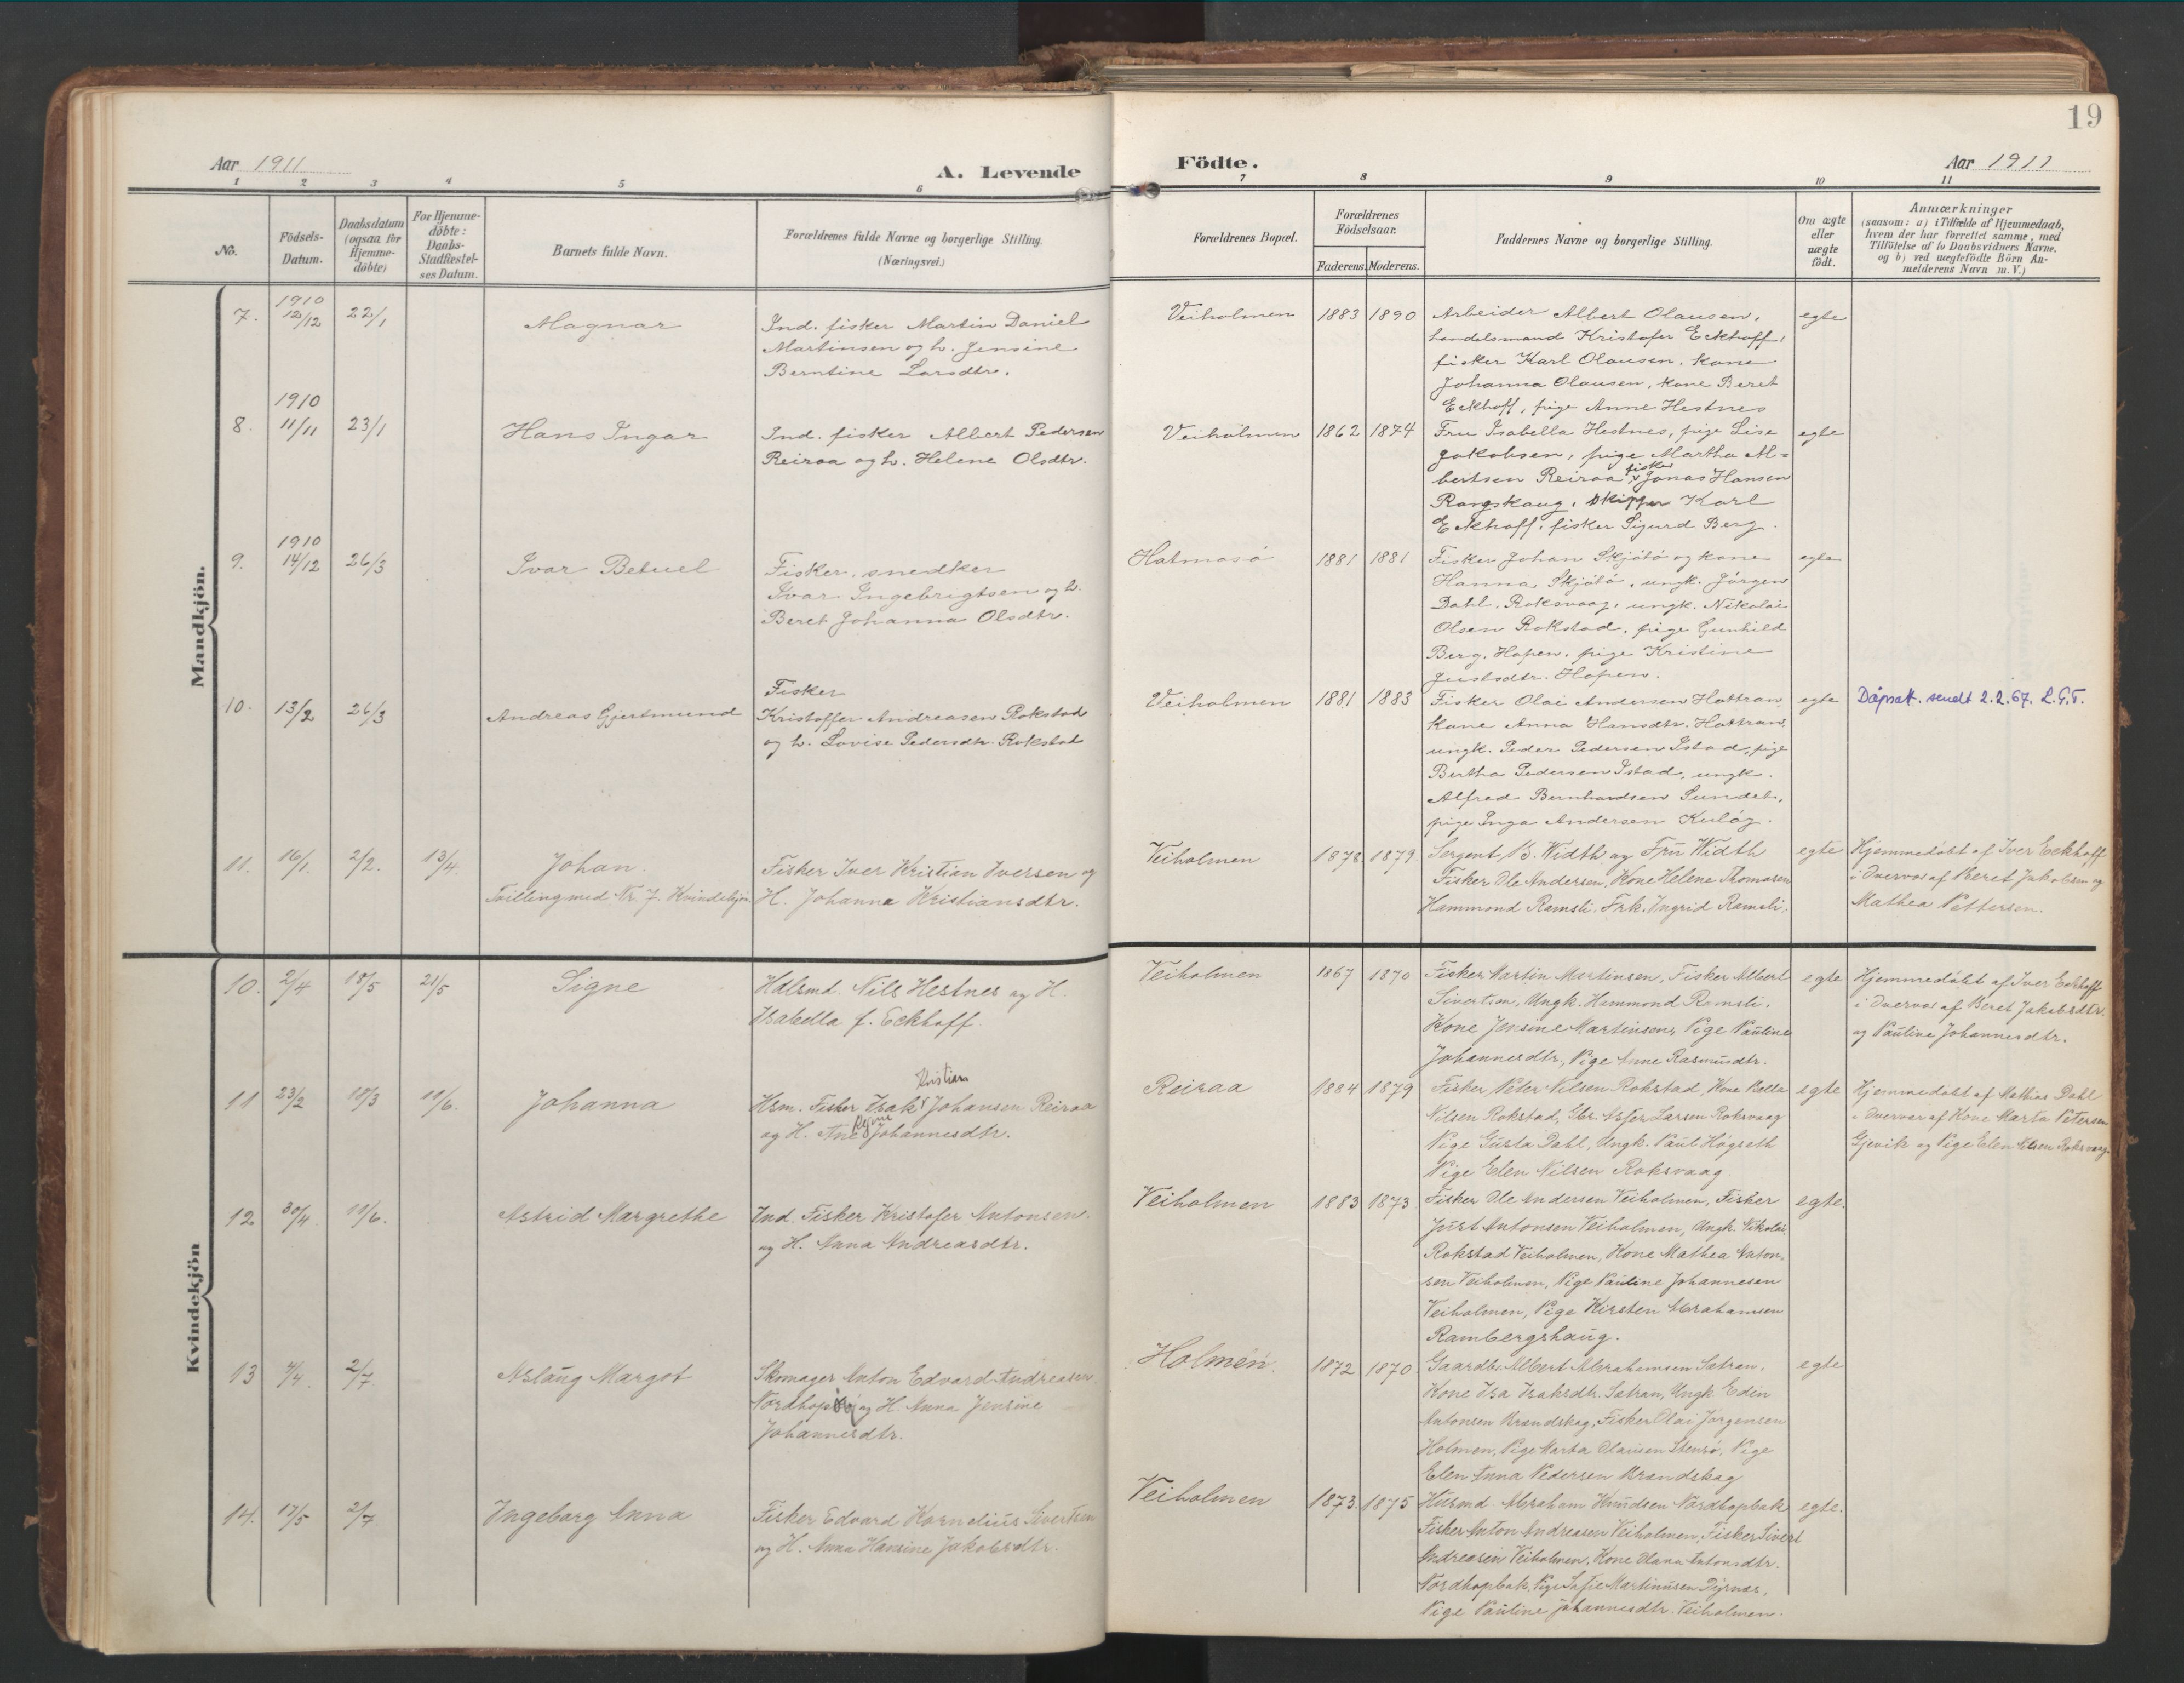 19
Aar 1911
A. Levende
Födte.
Aar 1911
1 2 3 4 5 6 7 8 9 10 11
No.
Födsels-
Datum.
Daabsdatum
(ogsaa for
Hjemme-
döbte)
For Hjemme-
döbte:
Daabs-
Stadfæstel-
ses Datum.
Barnets fulde Navn.
Forældrenes fulde Navne og borgerlige Stilling.
(Næringsvei.)
Forældrenes Bopæl.
Forældrenes
Födselsaar.
Faderens. Moderens.
Faddernes Navne og borgerlige Stilling.
Om ægte
eller
uægte
födt.
Anmærkninger
(saasom: a) i Tilfælde af Hjemmedaab,
hvem der har forrettet samme, med
Tilföielse af to Daabsvidners Navne,
og b) ved uægtefödte Börn An-
melderens Navn m. V.)
Mandkjön.
7. 1910 12/12 22/1 Magnar
Ind. fisker Martin Daniel
Martinsen og h. Jensine
Berntine Larsdtr.
Veiholmen 1883 1890
Arbeider Albert Olausen,
handelsmand Kristofer Eckhoff,
fisker Karl Olausen, kone
Johanna Olausen, kone Beret
Eckhoff, pige Anne Hestnes
egte
8. 1910 11/11 23/1 Hans Ingar
Ind. fisker Albert Pedersen
Reiraa og h. Helene Olsdtr.
Veiholmen 1862 1874
Fru Isabella Hestnes, pige Lise
Jakobsen, pige Martha Al-
bertsen Reiraa, fisker Jonas Hansen
Rangskaug, skipper Karl
Eckhoff, fisker Sigurd Berg.
egte
9. 1910 14/12 26/3 Ivar Betuel
Fisker, snedker
Ivar Ingebrigtsen og h.
Beret Johanna Olsdtr.
Hatmosö 1881 1881
Fisker Johan Skjötö og kone
Hanna Skjötö, ungk. Jörgen
Dahl, Roksvaag, ungk. Nikolai
Olsen Rokstad, pige Gunhild
Berg, Hopen, pige Kristine
Justsdtr. Hopen.
egte
10. 13/2 26/3 Andreas Gjertmund
Fisker
Kristoffer Andreasen Rokstad
og h. Lovise Pedersdtr. Rokstad
Veiholmen 1881 1883
Fisker Olai Andersen Hattran,
kone Anna Hansdtr. Hattran,
ungk. Peder Pedersen Istad, pige
Bertha Pedersen Istad, ungk.
Alfred Bernhardsen Sundet,
pige Inga Andersen Kulög.
egte
Dåpsatt. sendt 2.2.67. L.G.T.
11. 16/1. 2/2. 13/4. Johan.
Tvilling med Nr. 7. Kvindekjön
Fisker Iver Kristian Iversen og
H. Johanna Kristiansdtr.
Veiholmen 1878. 1879.
Sergent B. Width og Fru Width
Fisker Ole Andersen, Kone Helene Thomasen
Hammond Ramsli. Frk. Ingrid Ramsli.
egte
Hjemmedöbt af Iver Eckhoff
i Overvær af Beret Jakobsen og
Mathea Pettersen.
Kvindekjön
10. 2/4 18/5 21/5 Signe
Hdlsmd. Nils Hestnes og H.
Isabella f. Eckhoff.
Veiholmen 1867 1870
Fisker Martin Martinsen, Fisker Albert
Sivertsen, Ungk. Hammond Ramsli,
Kone Jensine Martinsen, Pige Pauline
Johannesdtr., Pige Anne Rasmusdtr.
egte
Hjemmedöbt af Iver Eckhoff
i Overvær af Beret Jakobsdtr.
og Pauline Johannesdtr.
11 23/2 18/3 11/6. Johanna
Kristian
Hsm. Fisker Isak Johansen Reiraa
og H. Ane Johannesdtr.
Reiraa 1884 1879
Fisker Peter Nilsen Rokstad, Kone Bella
Nilsen Rokstad, Gbr. Asfer Larsen Roksvaag
Pige Gusta Dahl, Ungk. Paul Högseth
Pige Elen Nilsen Roksvaag.
egte
Hjemmedöbt af Mathias Dahl
i Overvær af Kone Marta Petersen
Gjevik og Pige Elen Nilsen Roksvaag.
12 30/4. 11/6. Astrid Margrethe
Ind. Fisker Kristofer Antonsen.
og H. Anna Andreasdtr.
Veiholmen 1883 1873.
Fisker Ole Andersen Veiholmen, Fisker
Just Antonsen Veiholmen, Ungk. Nikolai
Rokstad Veiholmen, Kone Mathea Anton-
sen Veiholmen, Pige Pauline Johannesen
Veiholmen, Pige Kirsten Abrahamsen
Rambergshaug.
egte.
13 4/4. 2/7. Aslaug Margot
Skomager Anton Edvard Andreasen.
og H. Anna Jensine
Johannesdtr.
Holmen. 1872 1870.
Gaardb. Albert Abrahamsen Sætran.
Kone Isa Isaksdtr. Sætran, Ungk. Eden
Antonsen Brændskag, Fisker Olai Jörgensen
Holmen, Pige Marta Olausen Stensö, Pige
Elen Anna Pedersen Brændskag
egte
14. 17/5 2/7 Ingeborg Anna
Fisker Edvard Kornelius Sivertsen
og H. Anna Hansine Jakobsdtr.
Veiholmen 1873. 1875
Husmd. Abraham Knudsen Nordhopbak
Fisker Anton Andreasen Veiholmen, Fisker Sivert
Andreasen Veiholmen, Kone Olana Antonsdtr.
Nordhopbak, Pige Sofie Martinusen Dyrnæs,
Pige Pauline Johannesdtr. Veiholmen.
egte.